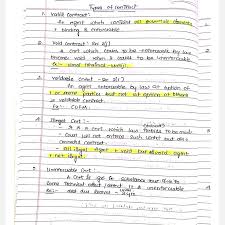 Types of contract
1. Valid contract:-
An agmt which contains all essential elements
& binding & enforceable
2. Void contract - Sec 2(j)
A cont which ceases to be enforceable by law
becomes void when it ceases to be enforceable
3. Voidable contract - Sec 2(i)
An agmt enforceable by law at option of
1 or more parties but not at option of others
is voidable contract.
Eg:-
4. Illegal Cont :-
It is a cont which law forbids to be made.
Court will not enforce such cont but also
connected contract
All illegal agmt r void but all void agmt
r not illegal.
5. Unenforceable Cont :-
A cont is good in substance but due to
some technical defect, cannot be enforceable